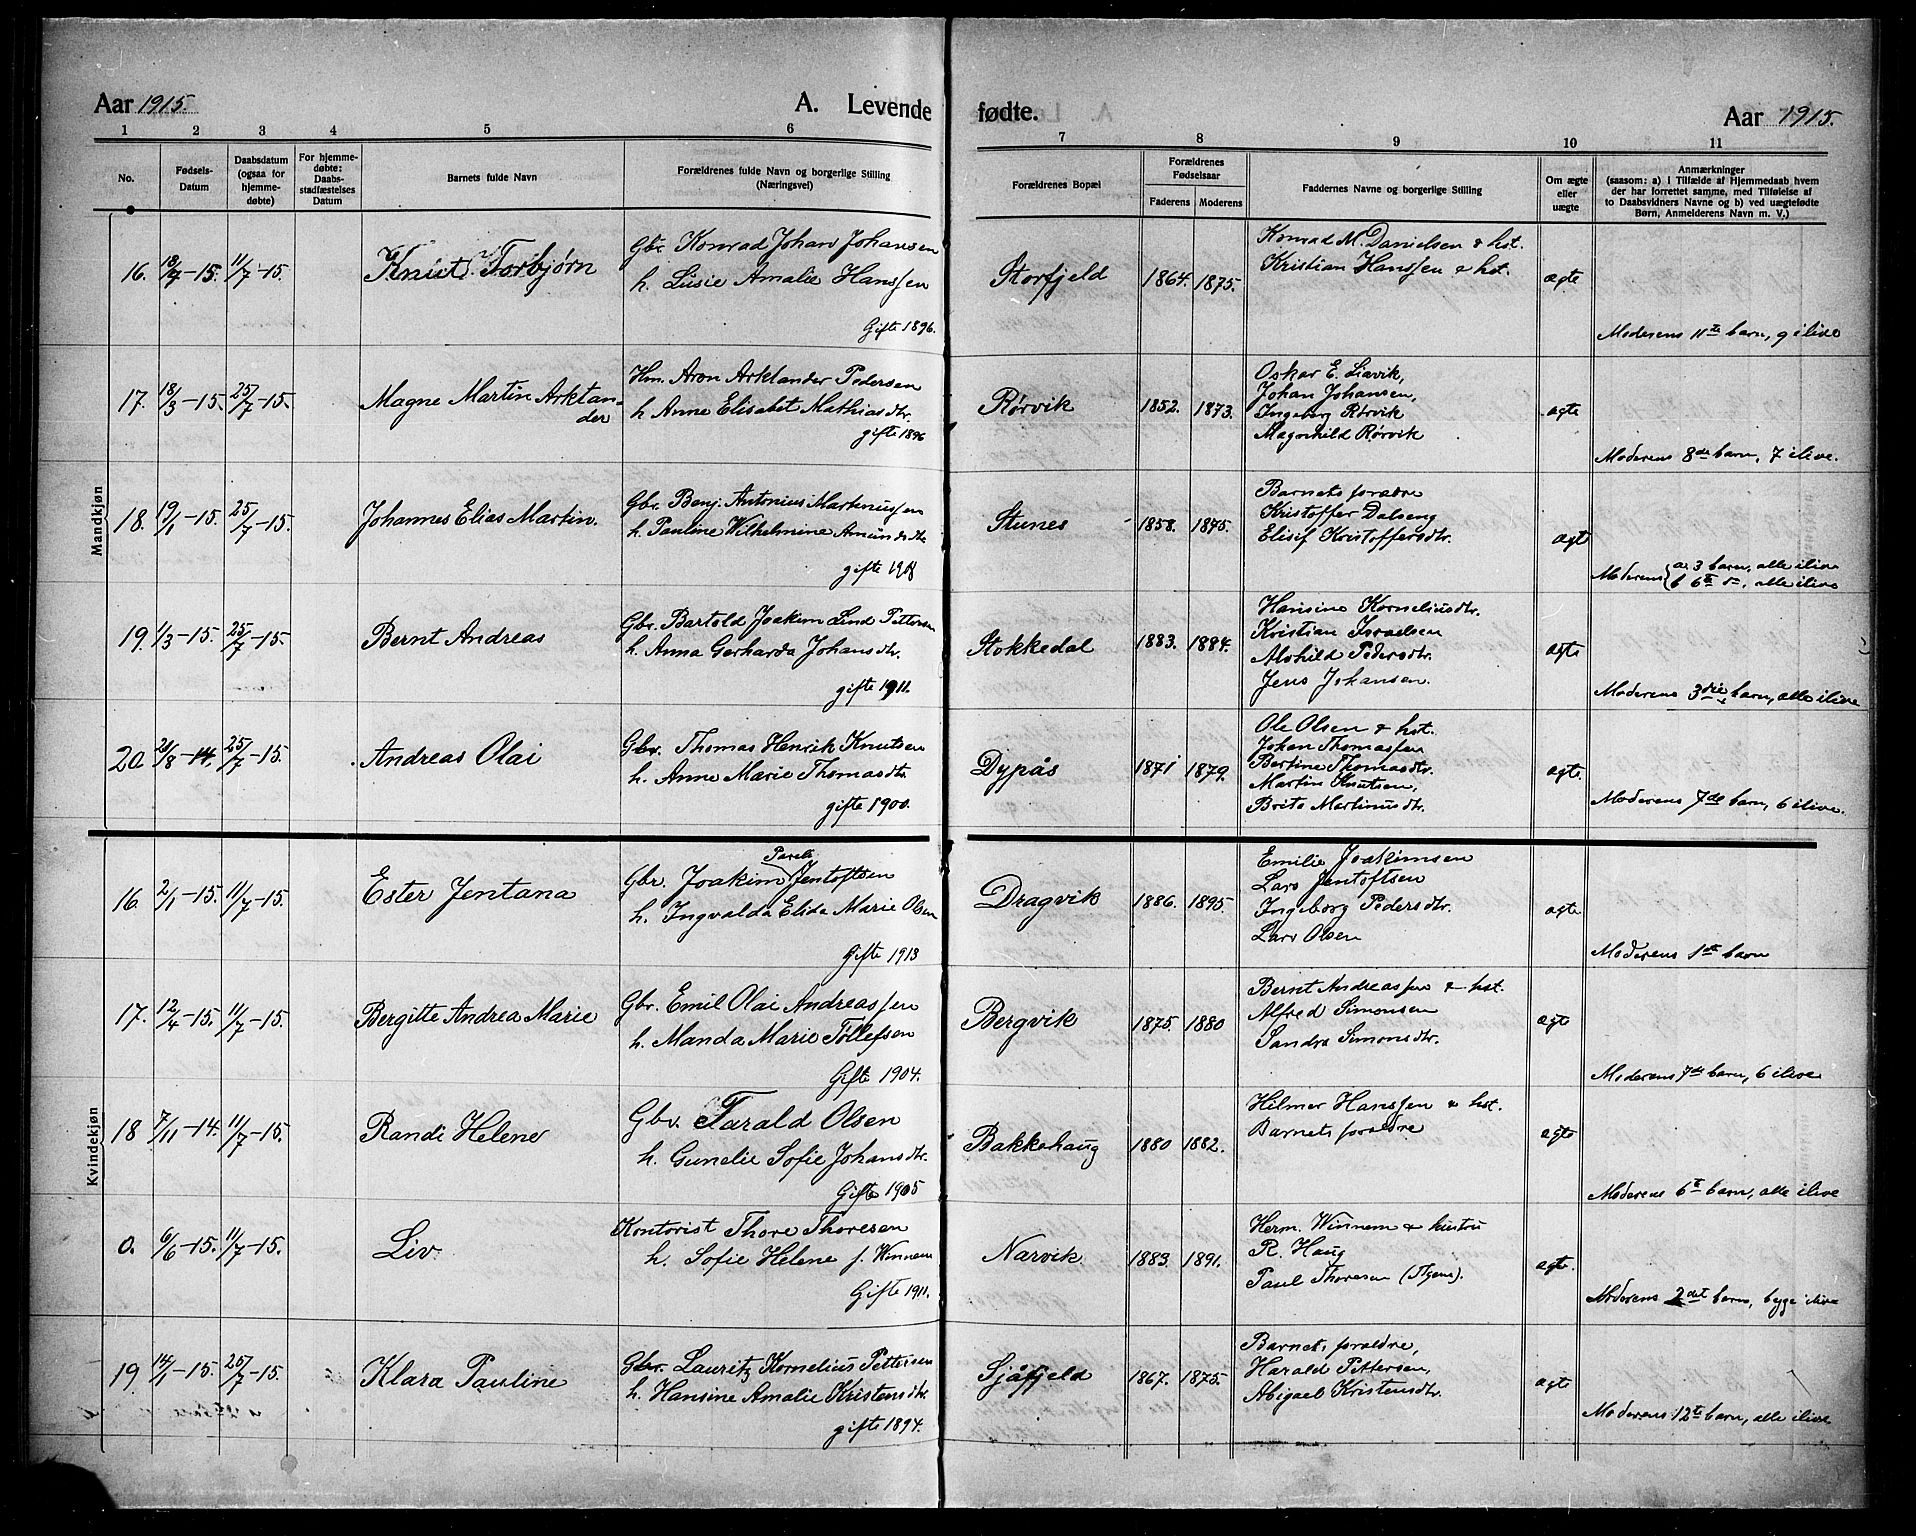 Aar 1915.
A. Levende
fødte.
Aar 1915.
1 2 3 4 5 6 7 8 9 10 11
No.
Fødsels-
Datum
Daabsdatum
(ogsaa for
hjemme-
døbte)
For hjemme-
døbte:
Daabs-
stadfæstelses
Datum
Barnets fulde Navn
Forældrenes fulde Navn og borgerlige Stilling
(Næringsvei)
Forældrenes Bopæl
Forældrenes
Fødselsaar
Faderens
Moderens
Faddernes Navne og borgerlige Stilling
Om ægte
eller
uægte
Anmærkninger
(saasom: a) i Tilfælde af Hjemmedaab hvem
der har forrettet samme, med Tilføielse af
to Daabsvidners Navne og b) ved uegtefødte
Børn, Anmelderens Navn m. V.)
Mandkjøn
16. 11/7-15
Knut Torbjørn
Gbr. Konrad Johan Johansen
h. Lusie Amalie Hanssen
Gifte 1896.
Storfjeld
1864. 1875.
Konrad M. Danielsen & hst.
Kristian Hanssen & hst.
ægte
Moderens 11te barn, 9 ilive
17. 18/3-15. 25/7-15.
Magne Martin Arktan-
der
Hm. Aron Arktander Pedersen
h. Anne Elisabet Mathiasdtr.
gifte 1896
Rørvik
1852. 1873.
Oskar E. Liavik,
Johan Johansen,
Ingeborg Rørvik
Magnhild Rørvik
ægte
Moderens 8de barn, 7 ilive.
18. 19/1-15. 25/7-15.
Johannes Elias Martin.
Gbr. Benj. Antonius Martinussen
h. Pauline Wilhelmine Amundsdtr
gifte
Stunes
1858. 1875.
Barnets foraldre
Kristoffer Dalseng
Elisif Kristoffersdtr.
ægte
Moderens a. 3 barn, alle ilive
b 6te do, alle ilive
19. 1/3-15. 25/7-15.
Bernt Andreas
Gbr. Bartold Joakim Lind Pettersen
h. Anna Gerharda Johansdtr.
gifte 1911.
Stokkedal
1883. 1884.
Hansine Korneliusdtr.
Kristian Israelsen
Alvhild Pedersdtr.
Jens Johansen.
ægte
Moderens 3die barn, alle ilive
20. 21/8-14. 25/7-15.
Andreas Olai
Gbr. Thomas Henrik Knutsen
h. Anne Marie Thomasdtr.
gifte 1900.
Dypås
1871 1879.
Ole Olsen & hst.
Johan Thomassen
Bertine Thomasdtr.
Martin Knutsen,
Brita Martinusdtr.
ægte
Moderens 7de barn, 6 ilive.
Kvindekjøn
16. 2/1-15. 11/7-15.
Ester Jentana
Gbr. Joakim Jentoftsen
h. Ingvalda Elida Marie Olsen
Gifte 1913
Dragvik
1886. 1895.
Emilie Joakimsen
Lars Jentoftsen
Ingeborg Pedersdtr.
Lars Olsen
ægte
Moderens 1ste barn
17. 12/4-15. 11/7-15.
Bergitte Andrea Marie
Gbr. Emil Olai Andreassen
h. Manda Marie Tollefsen
Gifte 1904.
Bergvik
1875. 1880
Bernt Andreassen & hst.
Alfred Simonsen
Sandra Simonsdtr.
ægte
Moderens 7de barn, 6 ilive
18 7/11-14. 11/7-15.
Randi Helene
Gbr. Tarald Olsen
h. Gunelie Sofie Johansdtr.
Gifte 1905
Bakkehaug
1880 1882.
Hilmer Hanssen & hst.
Barnets foraldre
ægte
Moderens 6te barn, alle ilive
0. 6/6-15. 11/7-15.
Liv.
Kontorist Thore Thoresen
h. Sofie Helene f. Winnem
Gifte 1911.
Narvik
1883. 1891.
Herm. Winnem & hustru
R. Haug
Paul Thoresen
ægte.
Moderens 2det barn, begge ilive
19. 14/1-15. 25/7-15.
Klara Pauline
Gbr. Lauritz Kornelius Pettersen
h. Hansine Amalie Kristensdtr
gifte 1894.
Sjåfjeld
1867. 1875.
Barnets foraldre,
Harald Pettersen,
Abigael Kristensdtr.
ægte
Moderens 12te barn, alle ilive